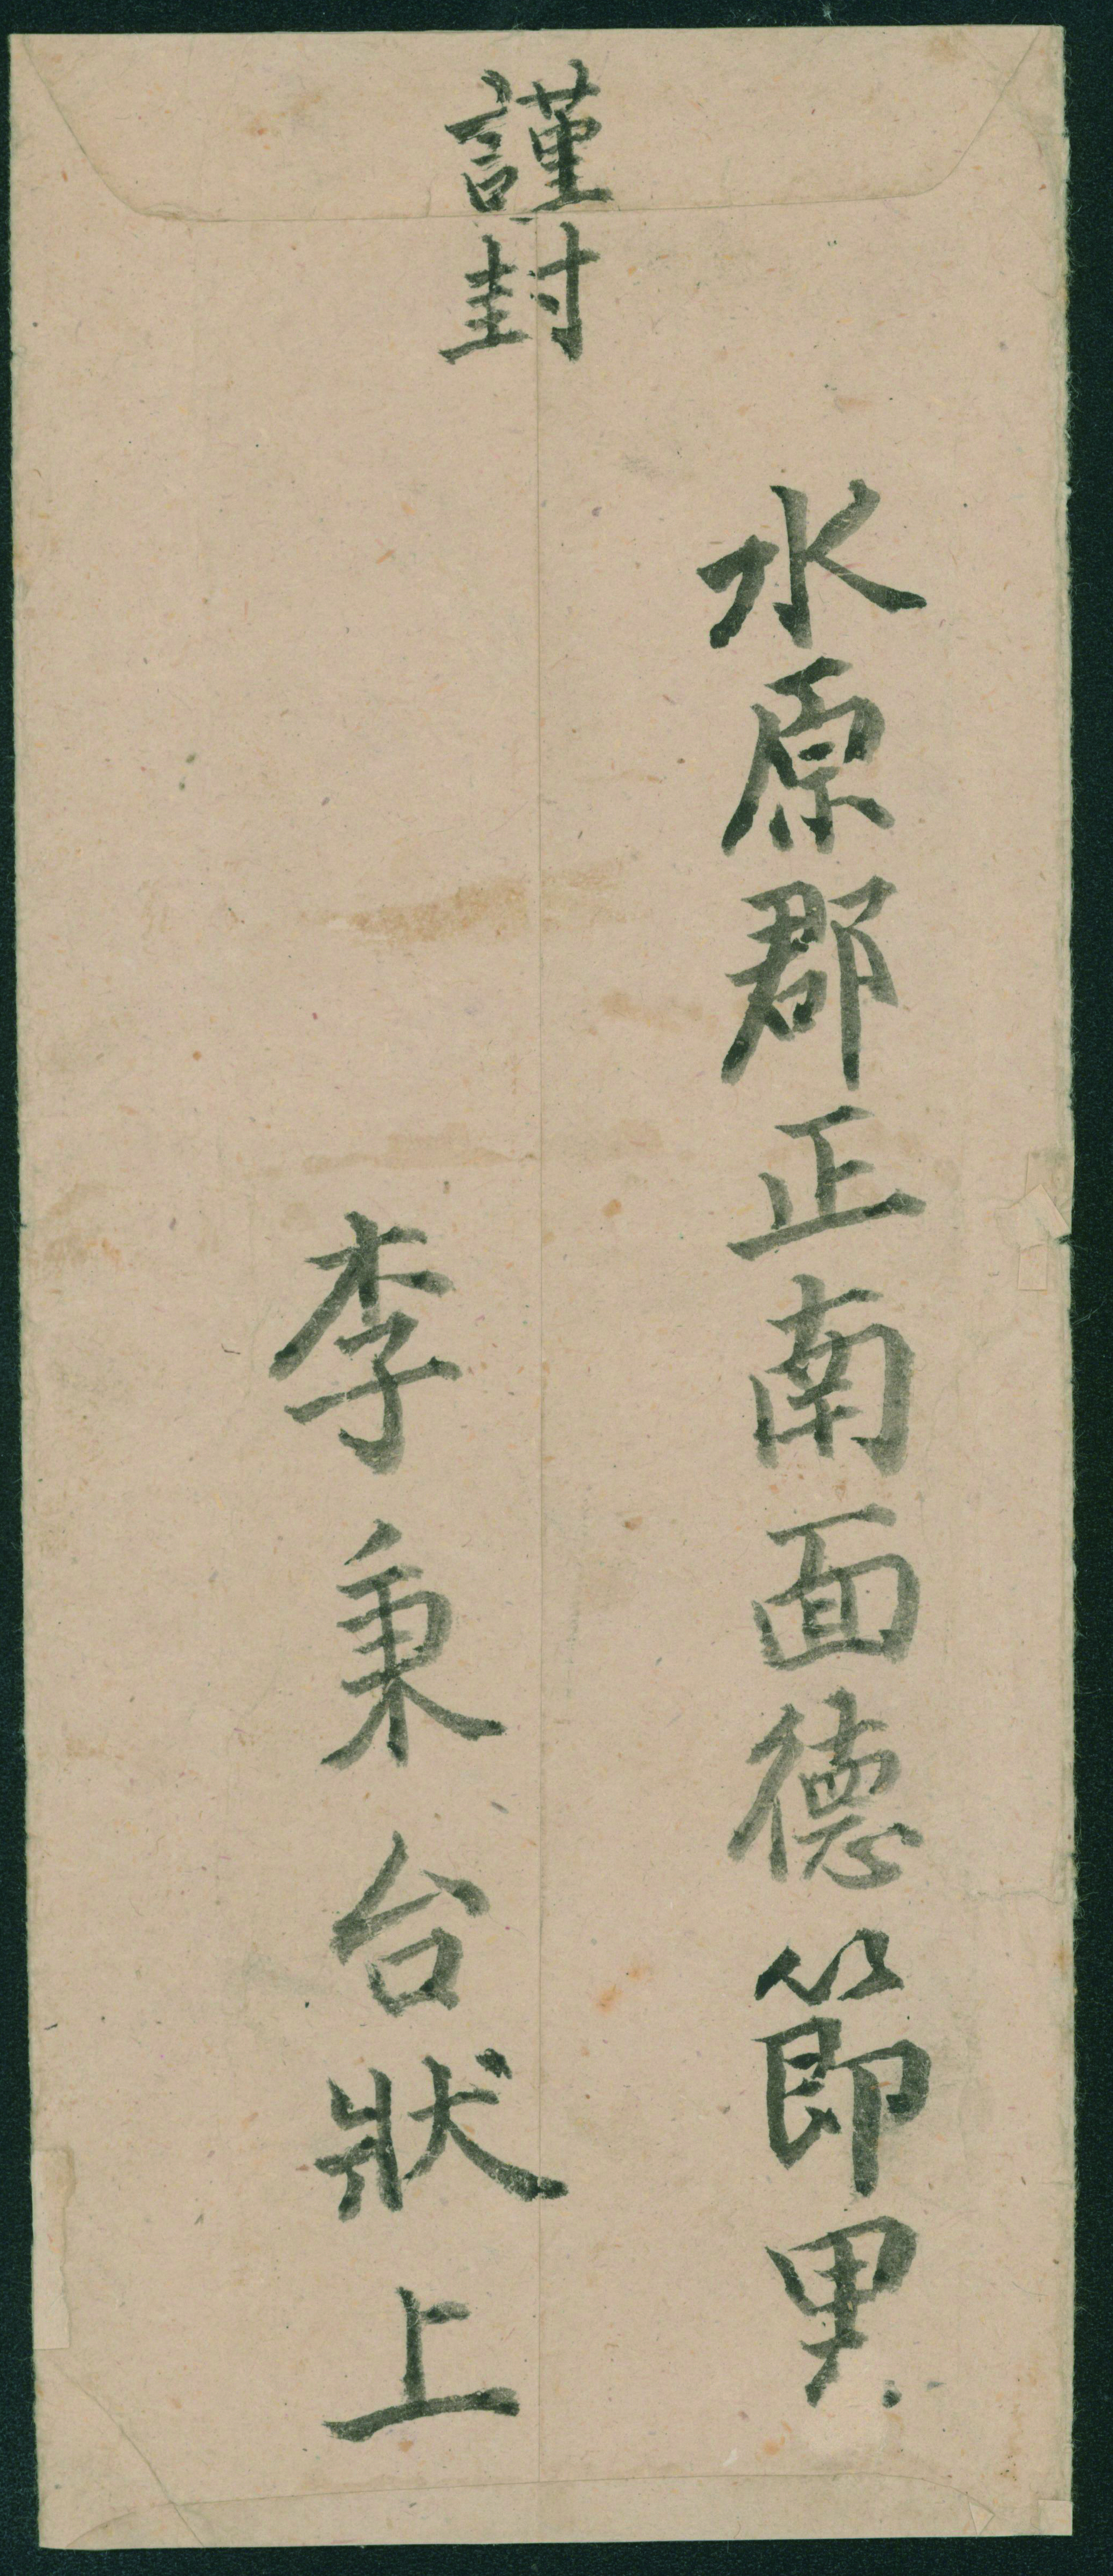 謹封
水原郡正南面德節里
李秉台狀上